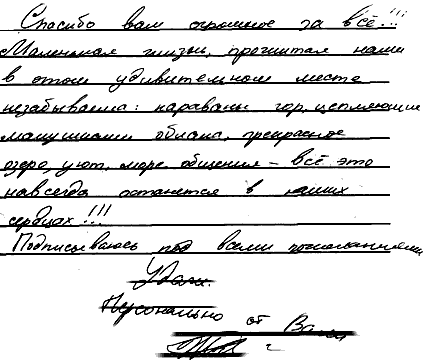 Спасибо вам огромное за всё!!!
Маленькая жизнь, прочитая нами
в этом удивительном месте
незабываема: караваны гор, цепляющие
макушками облака, прекрасное
озеро, уют, море общения – всё это
навсегда останется в наших
сердцах!!!
Подписываюсь под всеми пожеланиями
Удачи.
Персонально от Вали